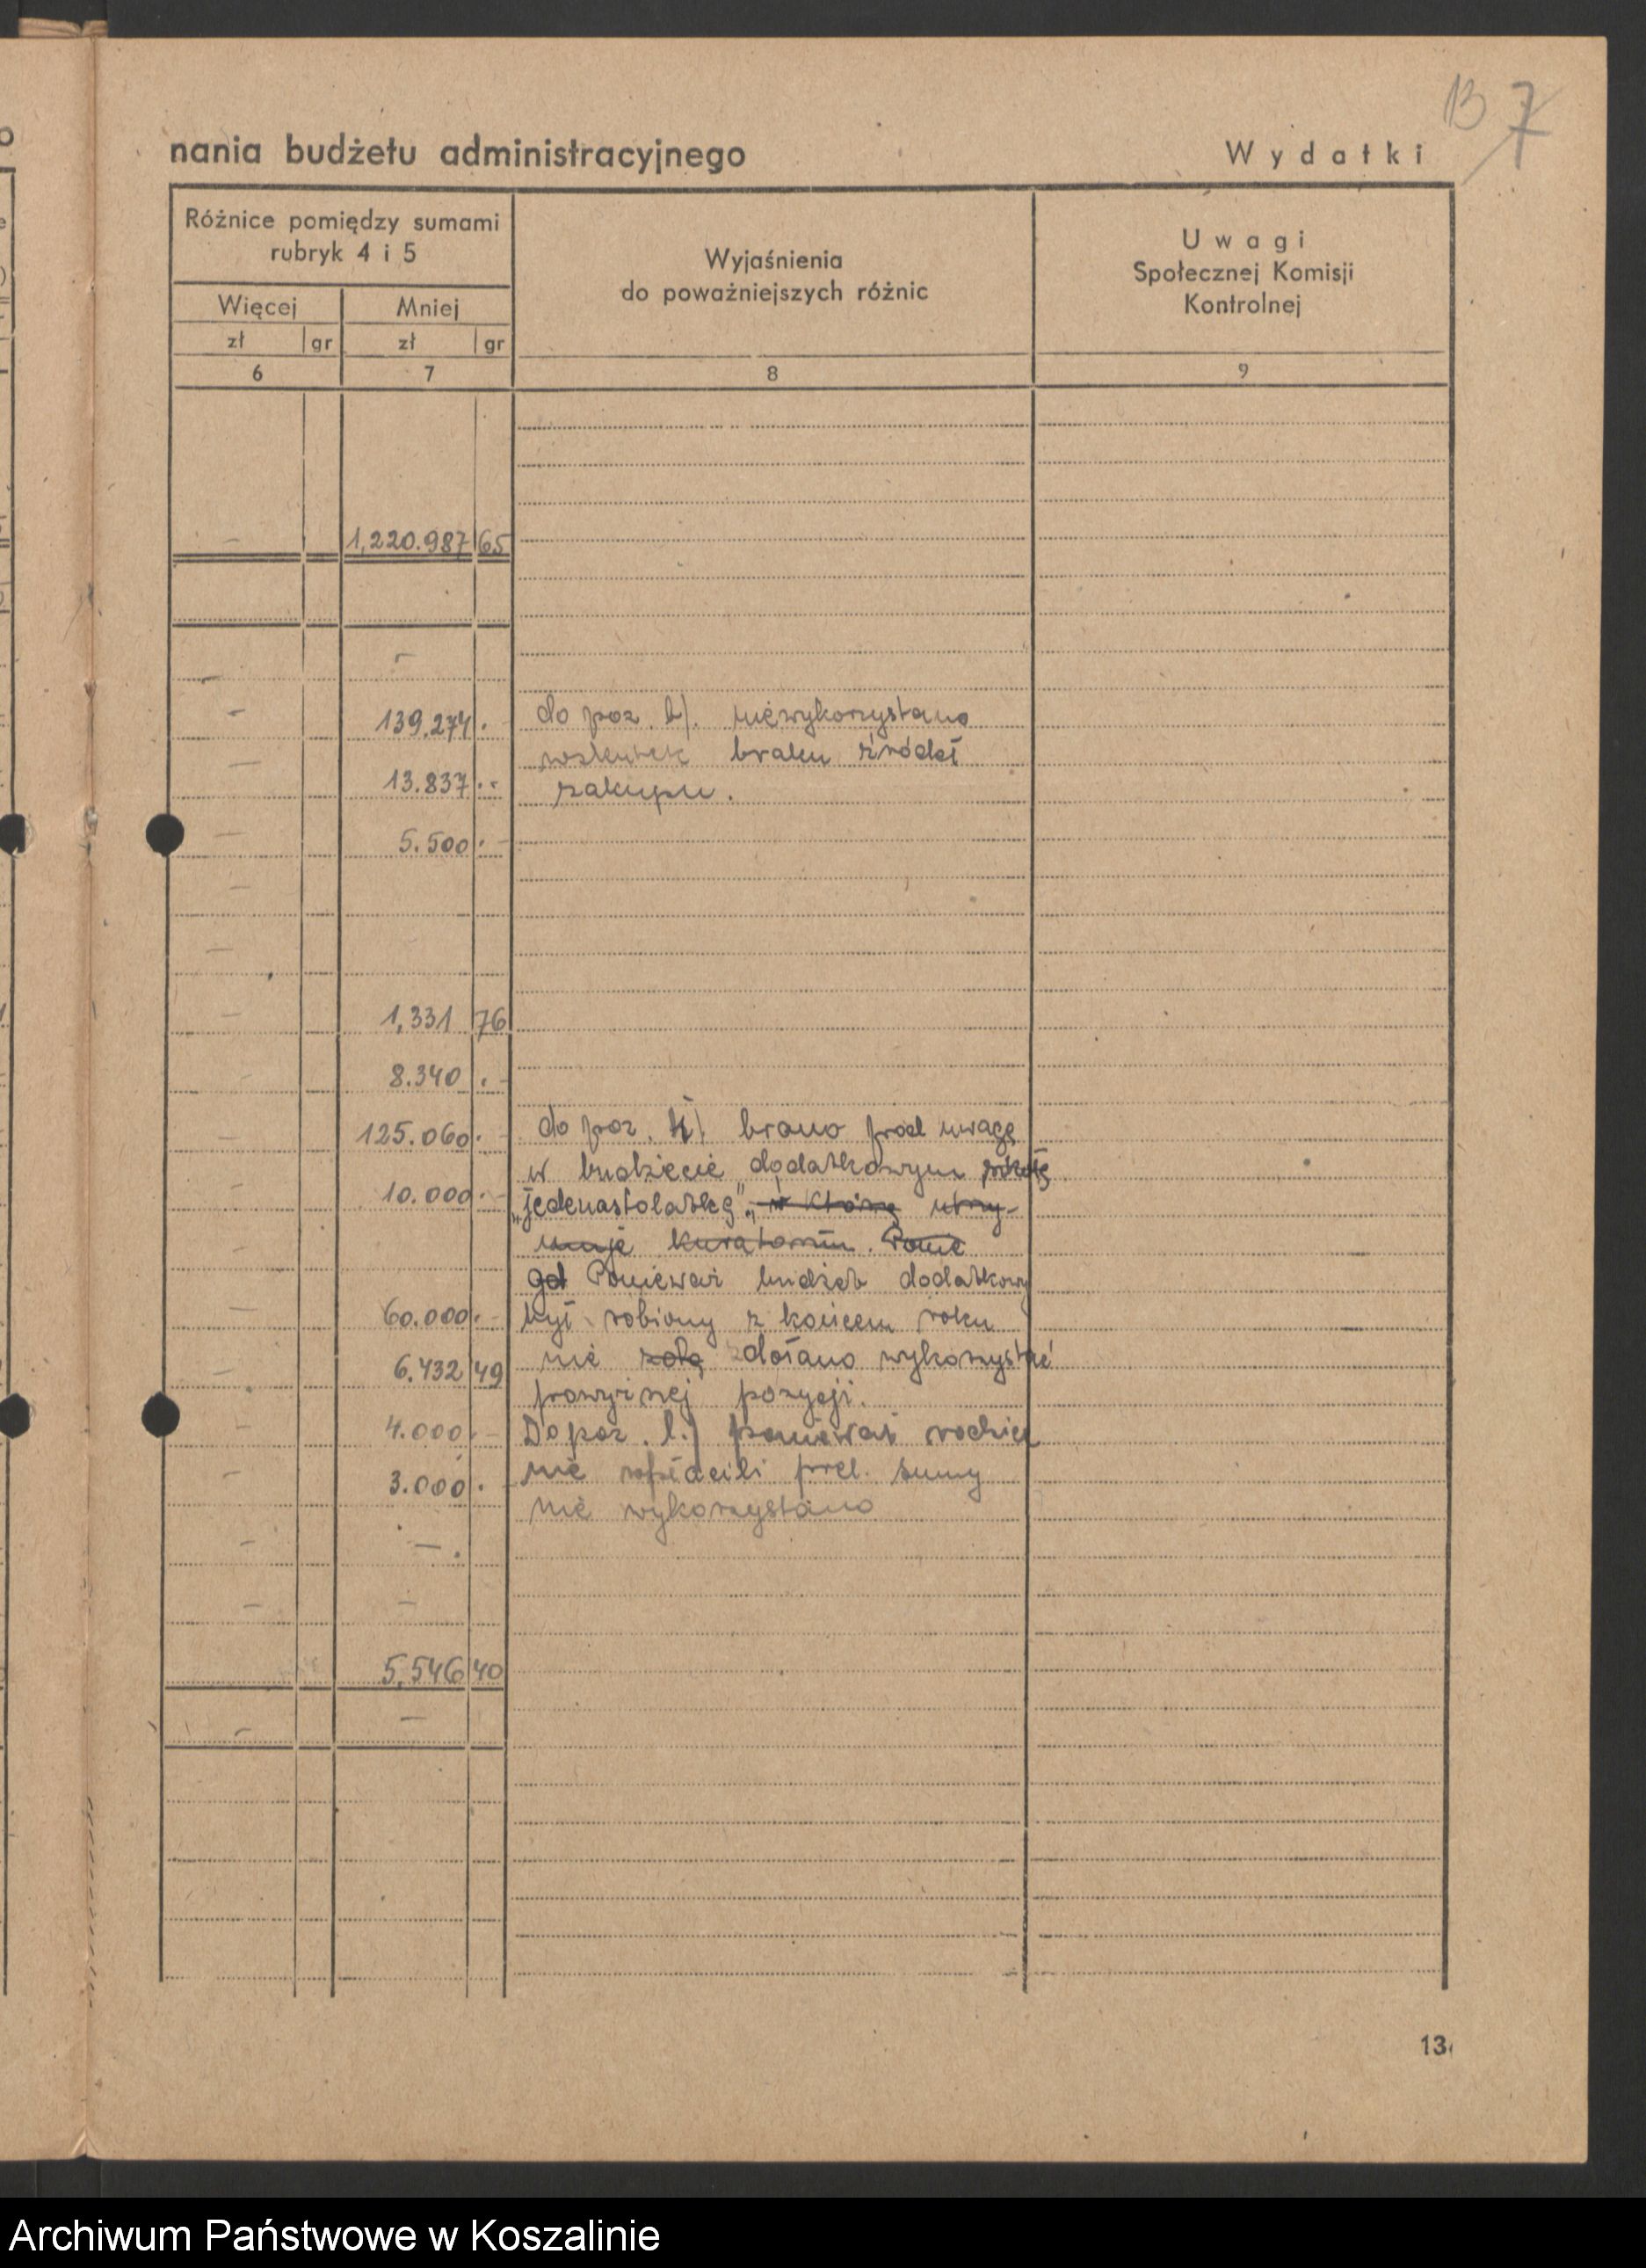 13 7
nania budżetu administracyjnego Wydatki
Różnice pomiędzy sumami
rubryk 4 i 5
Więcej Mniej
zł gr zł gr
Wyjaśnienia
do poważniejszych różnic
Uwagi
Społecznej Komisji
Kontrolnej
6 7 8 9
- 1,220.987 65
-
-
- 139.274 . do poz. b). niewykorzystano
wskutek braku źródeł
- 13.837 .- zakupu.
- 5.500 .-
-
-
- 1,331 76
- 8.340 .-
- 125.060 .- do poz. k) brano pod uwagę
w budżecie dodatkowym szkołę
- 10.000 .- „jedenastolatkę", w którą utrzy-
muje kuratorium. Ponie
god Ponieważ budżet dodatkowy
- 60.000 .- był robiony z końcem roku
- 6.432 49 nie zdołano wykorzystać
powyższej pozycji.
- 4.000 .- Do poz. l.) ponieważ rodzice
- 3.000 .- nie wpłacili prel. sumy
nie wykorzystano
- -
- -
5,546 40
- -
13
Archiwum Państwowe w Koszalinie